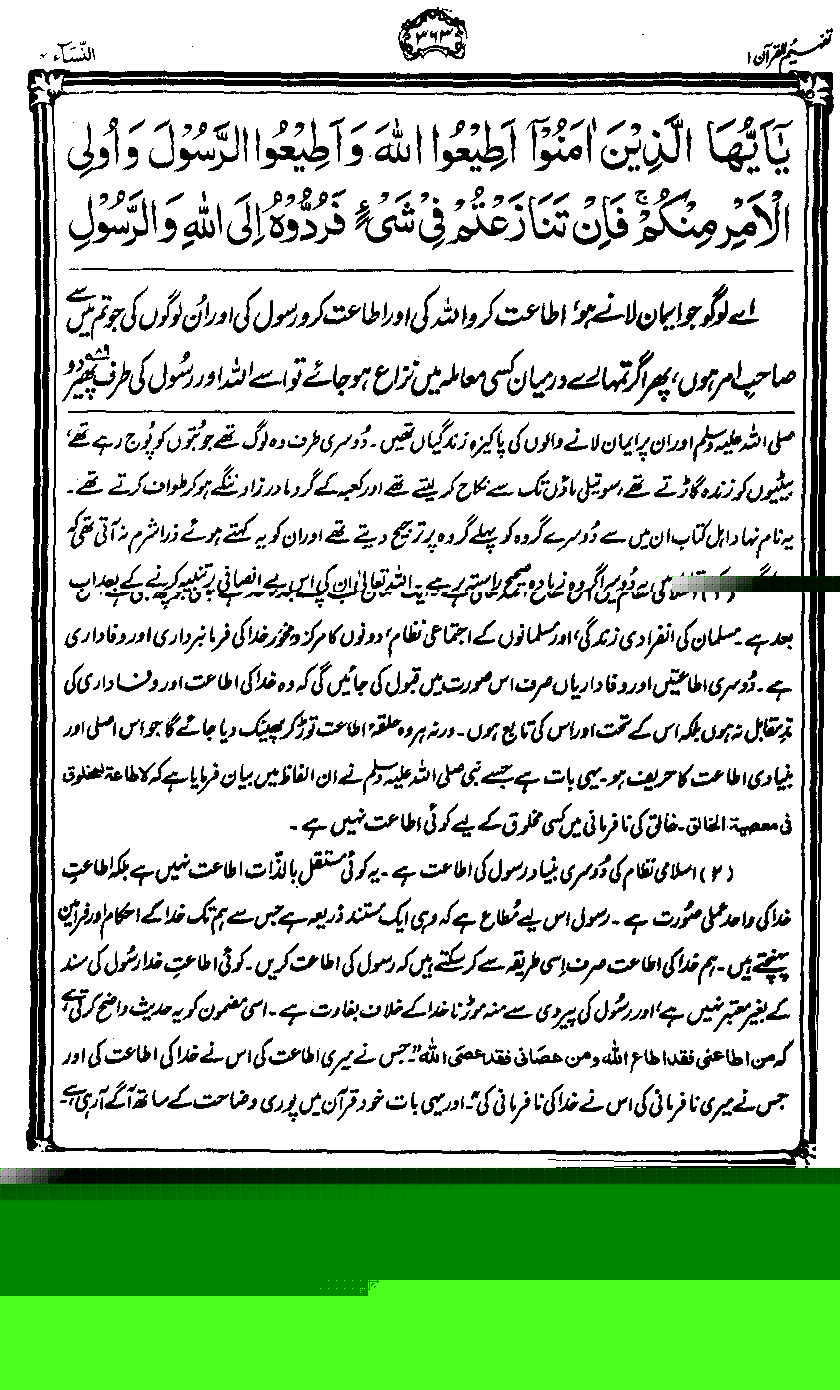 تفہیم القرآن ۱
۳۶۳
النّسَآء ۴
يٰۤاَيُّهَا الَّذِيْنَ اٰمَنُوْۤا اَطِيْعُوا اللّٰهَ وَاَطِيْعُوا الرَّسُوْلَ وَاُولِي
الْاَمْرِ مِنْكُمْ ۚ فَاِنْ تَنَازَعْتُمْ فِيْ شَيْءٍ فَرُدُّوْهُ اِلَى اللّٰهِ وَالرَّسُوْلِ
اے لوگو جو ایمان لائے ہو، اطاعت کرو اللہ کی اور اطاعت کرو رسول کی اور اُن لوگوں کی جو تم میں سے
صاحبِ امر ہوں، پھر اگر تمہارے درمیان کسی معاملہ میں نزاع ہو جائے تو اسے اللہ اور رسُول کی طرف پھیر دو
صلی اللہ علیہ وسلم اور ان پر ایمان لانے والوں کی پاکیزہ زندگیاں تھیں۔ دُوسری طرف وہ لوگ تھے جو بُتوں کو پُوج رہے تھے،
بیٹیوں کو زندہ گاڑتے تھے، سوتیلی ماؤں تک سے نکاح کر لیتے تھے اور کعبہ کے گرد مادر زاد ننگے ہو کر طواف کرتے تھے۔
یہ نام نہاد اہل کتاب ان میں سے دُوسرے گروہ کو پہلے گروہ پر ترجیح دیتے تھے اور ان کو یہ کہتے ہوئے ذرا شرم نہ آتی تھی کہ
یہ دُوسرا گروہ زیادہ صحیح راستہ پر ہے۔ اللہ تعالیٰ ان کی اس بے انصافی پر تنبیہ کرنے کے بعد اب
بعد ہے۔ مسلمان کی انفرادی زندگی، اور مسلمانوں کے اجتماعی نظام، دونوں کا مرکز و محور خدا کی فرمانبرداری اور وفاداری
ہے۔ دُوسری اطاعتیں اور وفاداریاں صرف اس صورت میں قبول کی جائیں گی کہ وہ خدا کی اطاعت اور وفاداری کی
مدِّ مقابل نہ ہوں بلکہ اس کے تحت اور اس کی تابع ہوں۔ ورنہ ہر وہ حلقۂ اطاعت توڑ کر پھینک دیا جائے گا جو اس اصلی اور
بنیادی اطاعت کا حریف ہو۔ یہی بات ہے جسے نبی صلی اللہ علیہ وسلم نے ان الفاظ میں بیان فرمایا ہے کہ لا طاعة لمخلوق
فی معصیة الخالق۔ خالق کی نافرمانی میں کسی مخلوق کے لیے کوئی اطاعت نہیں ہے۔
(۲) اسلامی نظام کی دُوسری بنیاد رسول کی اطاعت ہے۔ یہ کوئی مستقل بالذّات اطاعت نہیں ہے بلکہ اطاعتِ
خدا کی واحد عملی صُورت ہے۔ رسول اس لیے مُطاع ہے کہ وہی ایک مستند ذریعہ ہے جس سے ہم تک خدا کے احکام اور فرامین
پہنچتے ہیں۔ ہم خدا کی اطاعت صرف اِسی طریقہ سے کر سکتے ہیں کہ رسول کی اطاعت کریں۔ کوئی اطاعتِ خدا رسُول کی سند
کے بغیر معتبر نہیں ہے، اور رسُول کی پیروی سے منہ موڑنا خدا کے خلاف بغاوت ہے۔ اسی مضمون کو یہ حدیث واضح کرتی ہے
کہ من اطاعنی فقد اطاع اللہ ومن عصانی فقد عصی اللہ۔ "جس نے میری اطاعت کی اس نے خدا کی اطاعت کی اور
جس نے میری نافرمانی کی اس نے خدا کی نافرمانی کی"۔ اور یہی بات خود قرآن میں پوری وضاحت کے ساتھ آگے آ رہی ہے۔